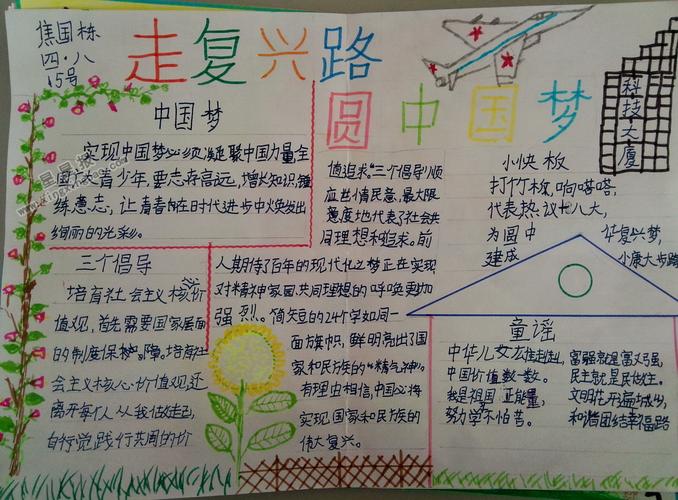 焦国栋
四·八
15号
走复兴路
圆中国梦
科技大厦
中国梦
实现中国梦必须凝聚中国力量全
国广大青少年,要志存高远,增长知识,锤
练意志,让青春在时代进步中焕发出
绚丽的光彩。
三个倡导
培育社会主义核价
值观,首先需要国家层面
的制度保障。培育社
会主义核心价值观,还
离开每个人从我做起,
自行觉践行共同的价
值追求。"三个倡导"顺
应世情民意,最大限
度地代表了社会共
同理想和追求。前
人期待了百年的现代化之梦正在实现
对精神家园共同理想的呼唤更加
强烈。简短的24个字如同一
面方旗帜,鲜明亮出了国
家和民族的"精气神"。
有理由相信,中国必将
实现国家和民族的
伟大复兴。
小快板
打竹板,响嗒嗒,
代表热议十八大,
为圆中
好复兴梦,
建成
小康大步踏
童谣
中华儿女去
中国价值数一数。
我是祖国正能量,
努力学不怕苦。
富强就是富又强,
民主就是民做主。
文明花开遍城乡,
和谐团结幸福路